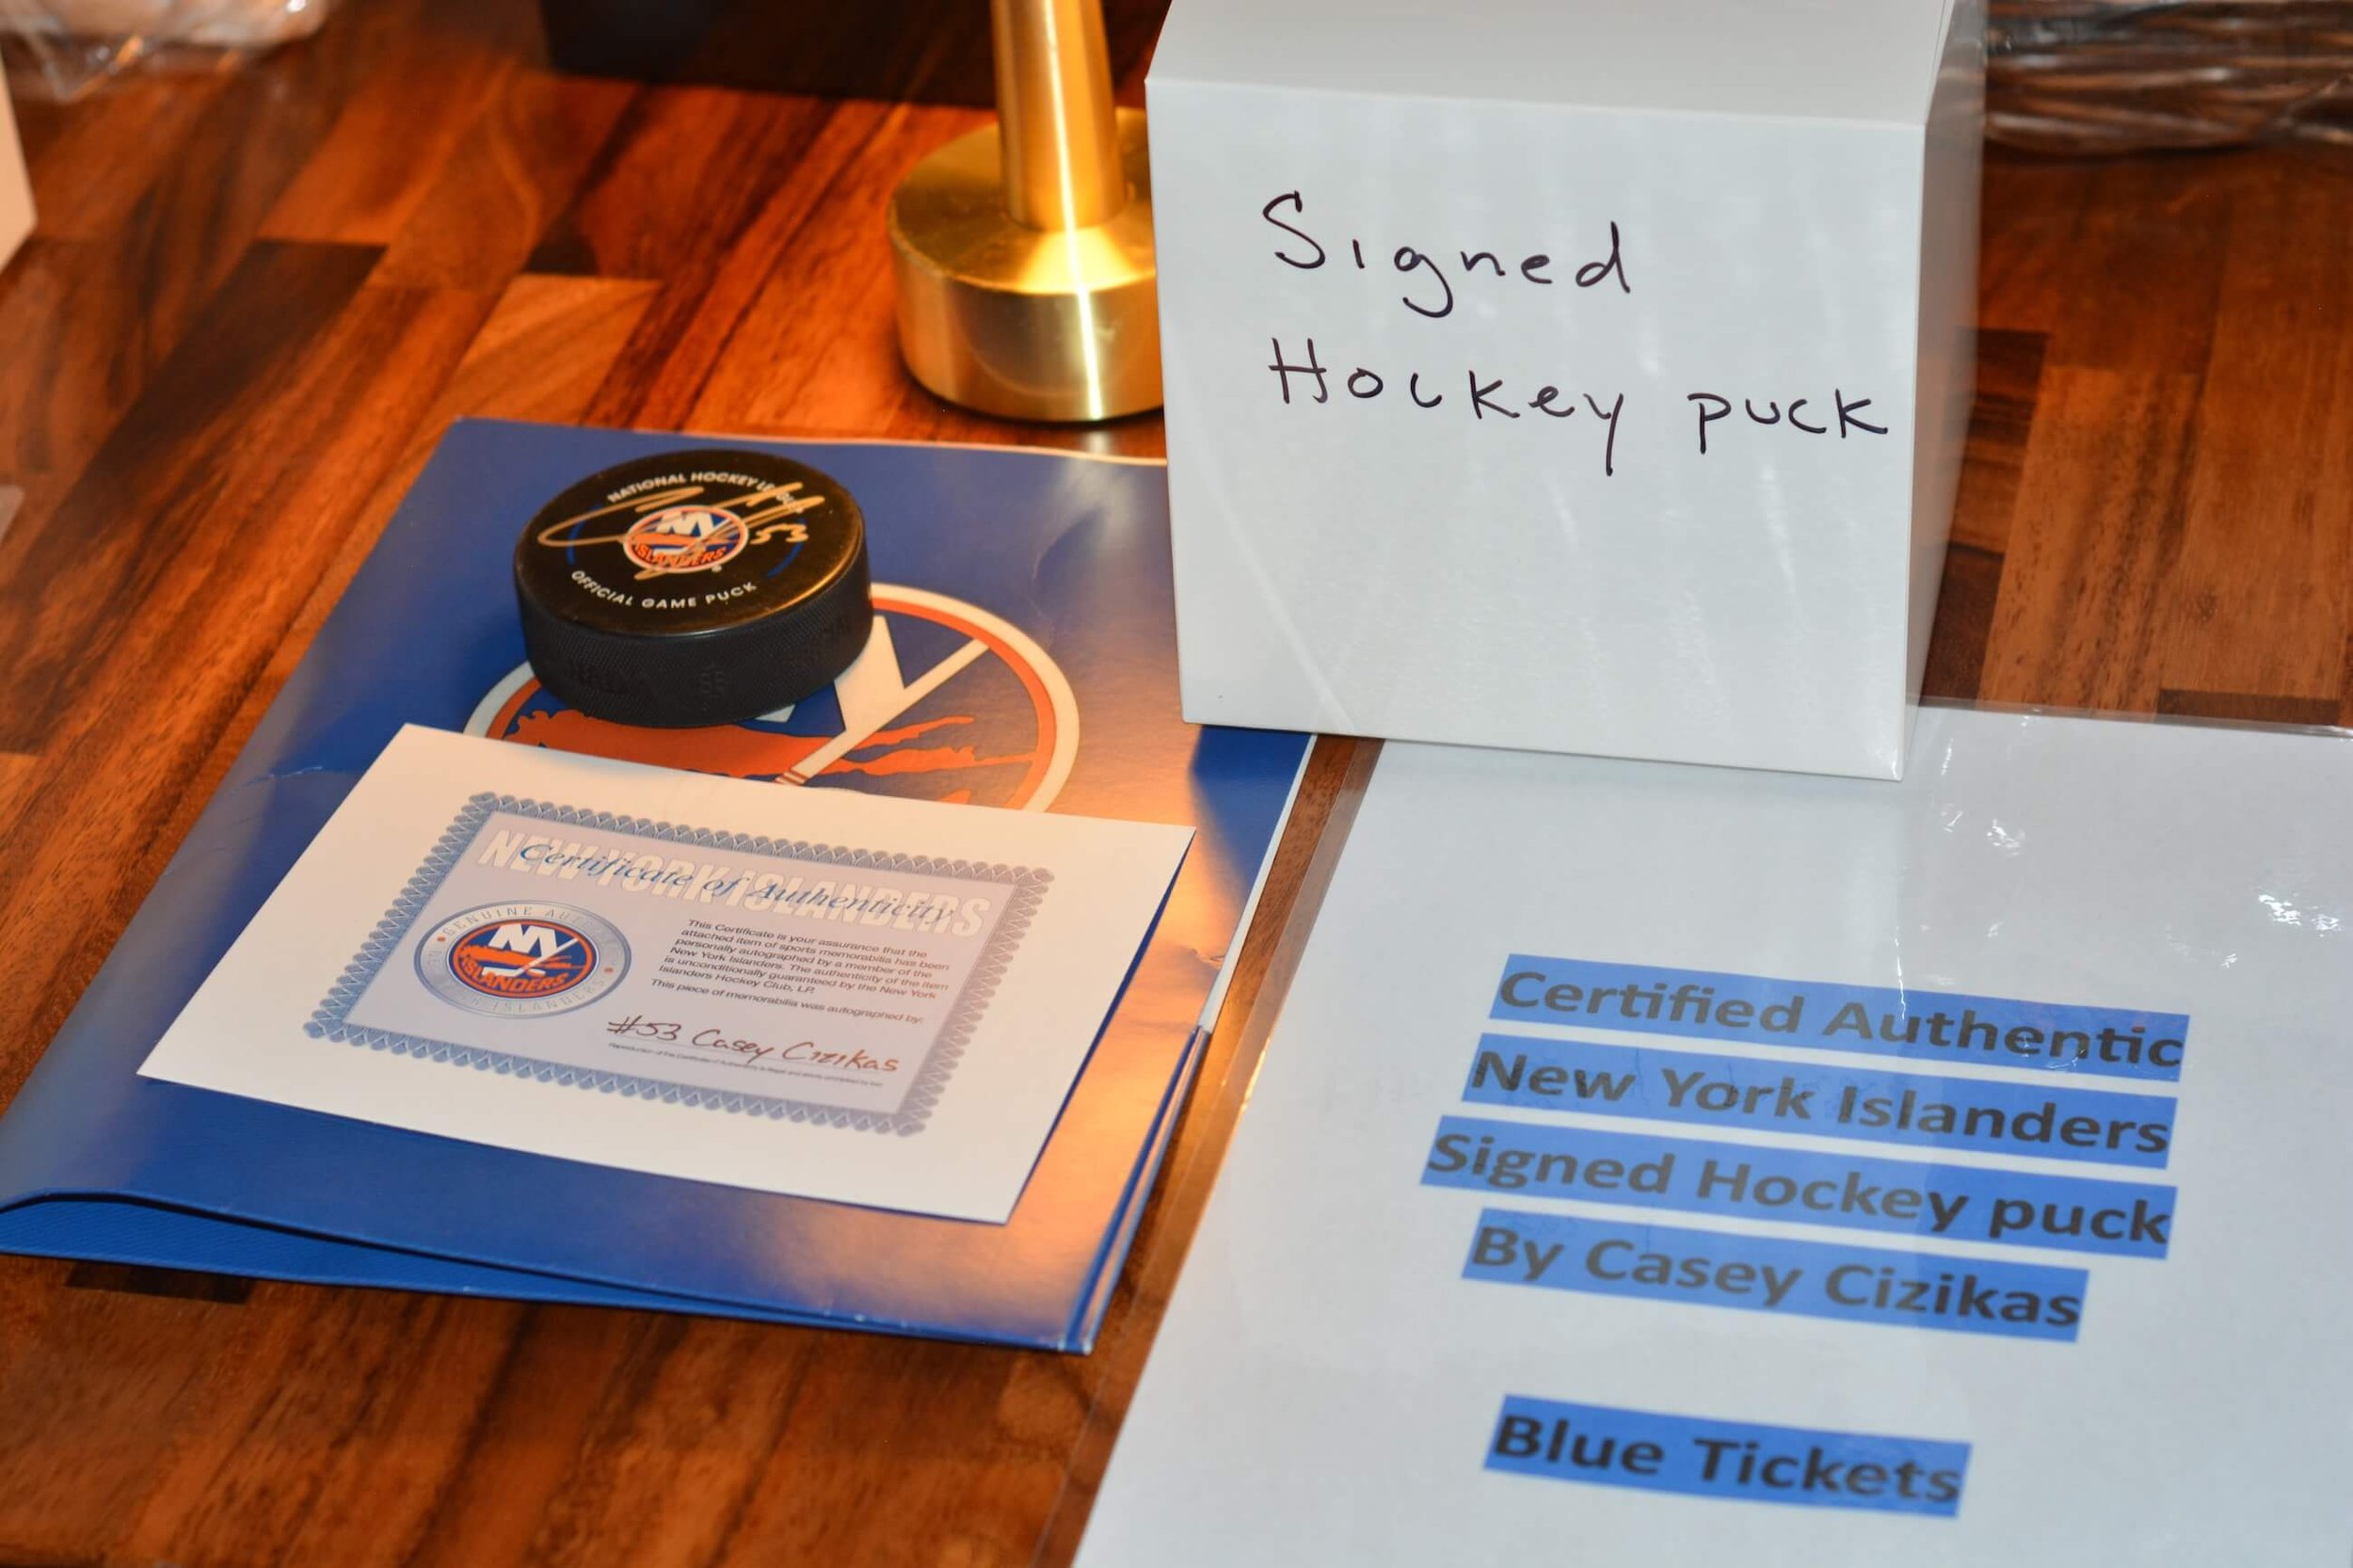 Signed
Hockey puck
NATIONAL HOCKEY
NY
ISLANDERS
53
OFFICIAL GAME PUCK
NEW YORK ISLANDERS
Certificate of Authenticity
GENUINE
NY
ISLANDERS
ISLANDERS
This Certificate is your assurance that the
attached item of sports memorabilia has been
personally autographed by a member of the
New York Islanders. The authenticity of the item
is unconditionally guaranteed by the New York
Islanders Hockey Club, LP.
This piece of memorabilia was autographed by:
#53 Casey Cizikas
Certified Authentic
New York Islanders
Signed Hockey puck
By Casey Cizikas
Blue Tickets